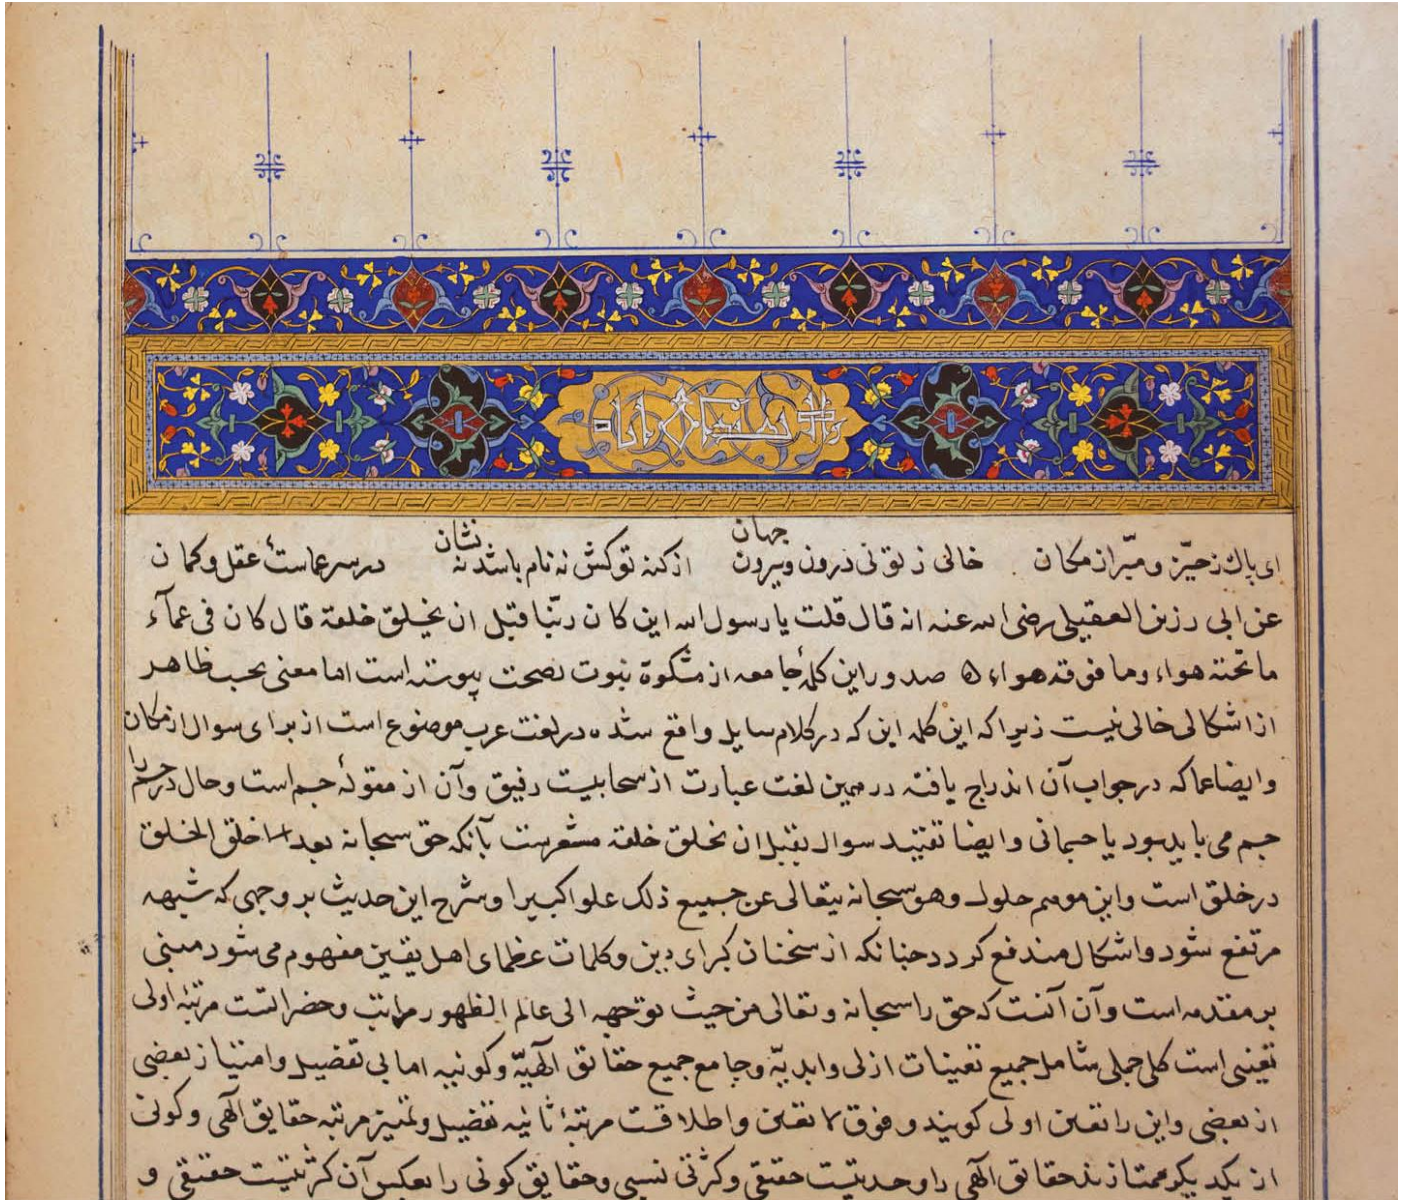 ای پاک ز حیّز و مبرّا ز مکان خالی ز تو نی درون و بیرون جهان از کنه تو کش نه نام باشد نه نشان در سر عماست عقل و کمان
عن ابی رزین العقیلی رضی الله عنه انه قال قلت یا رسول الله این کان ربّنا قبل ان یخلق خلقه قال کان فی عمآء
ما تحته هواء وما فوقه هواء ه صدور این کلمهٔ جامعه از مشکوة نبوت بصحت پیوسته است اما معنی بحسب ظاهر
از اشکالی خالی نیست زیرا که این کلمه این که در کلام سایل واقع شده در لغت عرب موضوع است از برای سوال از مکان
وایضا عما که در جواب آن اندراج یافته در همین لغت عبارت از سحابیست رقیق وآن از مقولهٔ جسم است وحال در جسم را
جسم می باید بود یا جسمانی وایضا تقیید سوال بقبل ان یخلق خلقه مشعرست بآنکه حق سبحانه بعد خلق الخلق
در خلق است واین موهم حلول وهو سبحانه یتعالی عن جمیع ذلک علوا کبیرا وشرح این حدیث بر وجهی که شبهه
مرتفع شود واشکال مندفع کردد چنانکه از سخنان کبرای دین وکلمات عظمای اهل یقین مفهوم می شود مبنی
بر مقدمه است وآن آنست که حق را سبحانه وتعالی من حیث توجهه الی عالم الظهور مراتب وحضراتست مرتبهٔ اولی
تعینی است کلی جملی شامل جمیع تعینات ازلی وابدیّه وجامع جمیع حقائق الهیّه وکونیه اما بی تفصیل وامتیاز بعضی
از بعضی واین را تعین اولی کویند وفوق تعین واطلاقست مرتبهٔ ثانیه تفصیل وتمییز مرتبه حقایق الهی وکونی
از یکدیکر ممتازند حقائق الهی را وحدتیست حقیقی وکثرتی نسبی وحقایق کونی را بعکس آن کثرتیست حقیقی و